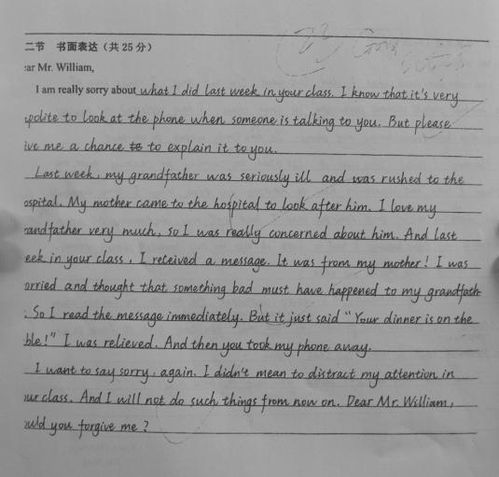 二节 书面表达 (共 25 分)
ar Mr. William,
I am really sorry about what I did last week in your class. I know that it's very
polite to look at the phone when someone is talking to you. But please
ive me a chance to explain it to you.
Last week, my grandfather was seriously ill and was rushed to the
ospital. My mother came to the hospital to look after him. I love my
andfather very much, so I was really concerned about him. And last
eek in your class, I received a message. It was from my mother! I was
orried and thought that something bad must have happened to my grandfath
. So I read the message immediately. But it just said "Your dinner is on the
ble!" I was relieved. And then you took my phone away.
I want to say sorry, again. I didn't mean to distract my attention in
ur class. And I will not do such things from now on. Dear Mr. William,
ould you forgive me?